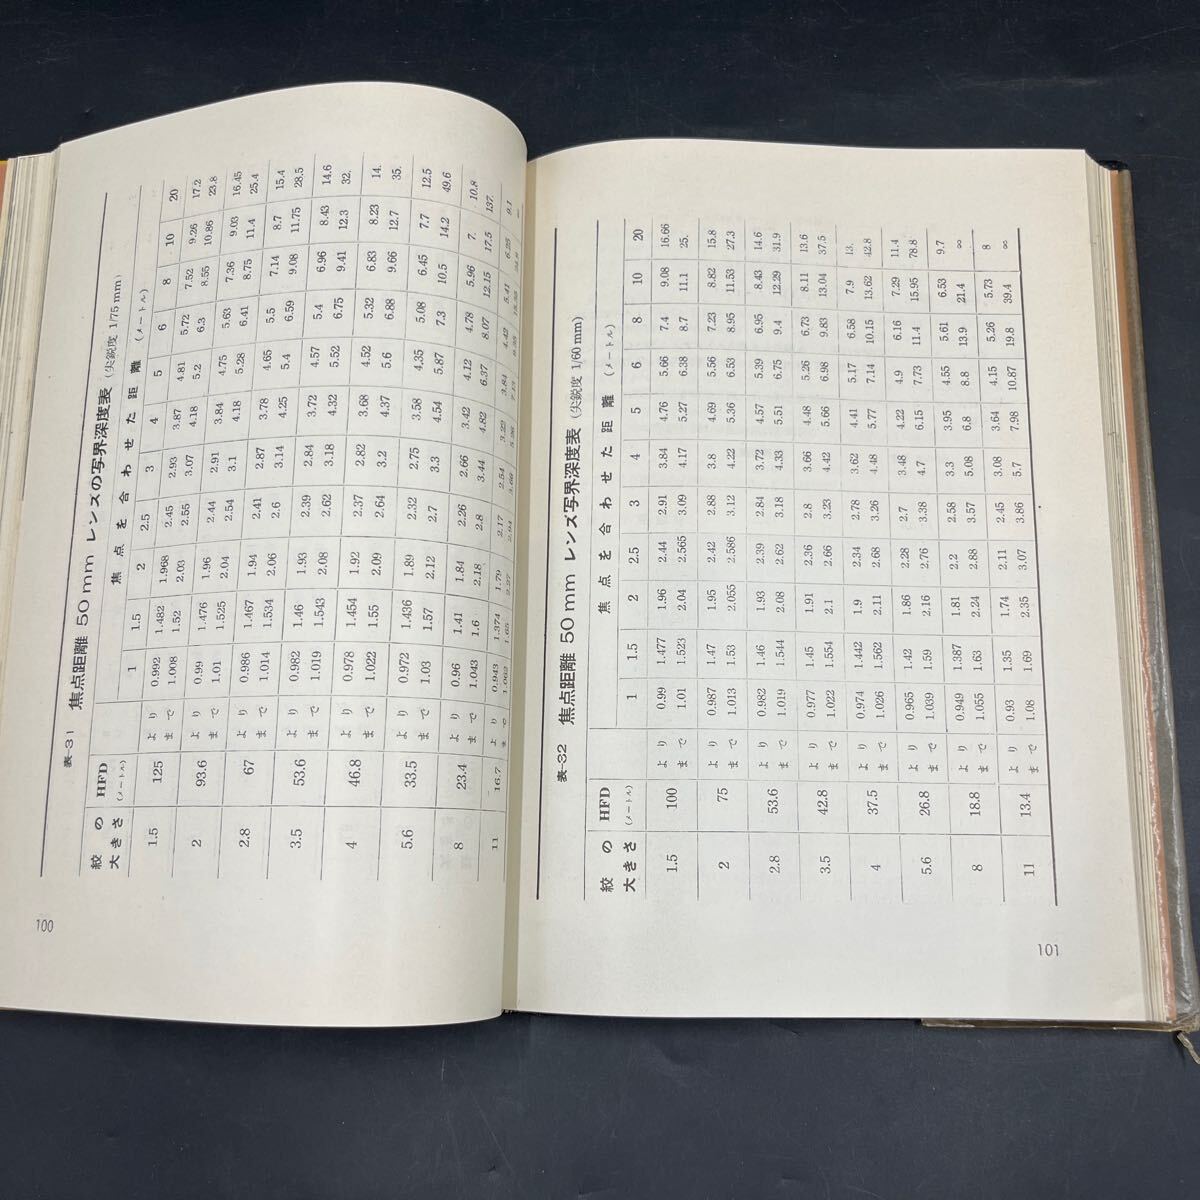 表-31 焦点距離 50 mm レンズの写界深度表 (尖鋭度 1/75 mm)
絞の大きさ HFD (メートル) 焦点を合わせた距離 (メートル)
1 1.5 2 2.5 3 4 5 6 8 10 20
1.5 125 より 0.992 1.482 1.968 2.45 2.93 3.87 4.81 5.72 7.52 9.26 17.2
まで 1.008 1.52 2.03 2.55 3.07 4.18 5.2 6.3 8.55 10.86 23.8
2 93.6 より 0.99 1.476 1.96 2.44 2.91 3.84 4.75 5.63 7.36 9.03 16.45
まで 1.01 1.525 2.04 2.54 3.1 4.18 5.28 6.41 8.75 11.4 25.4
2.8 67 より 0.986 1.467 1.94 2.41 2.87 3.78 4.65 5.5 7.14 8.7 15.4
まで 1.014 1.534 2.06 2.6 3.14 4.25 5.4 6.59 9.08 11.75 28.5
3.5 53.6 より 0.982 1.46 1.93 2.39 2.84 3.72 4.57 5.4 6.96 8.43 14.6
まで 1.019 1.543 2.08 2.62 3.18 4.32 5.52 6.75 9.41 12.3 32.
4 46.8 より 0.978 1.454 1.92 2.37 2.82 3.68 4.52 5.32 6.83 8.23 14.
まで 1.022 1.55 2.09 2.64 3.2 4.37 5.6 6.88 9.66 12.7 35.
5.6 33.5 より 0.972 1.436 1.89 2.32 2.75 3.58 4.35 5.08 6.45 7.7 12.5
まで 1.03 1.57 2.12 2.7 3.3 4.54 5.87 7.3 10.5 14.2 49.6
8 23.4 より 0.96 1.41 1.84 2.26 2.66 3.42 4.12 4.78 5.96 7. 10.8
まで 1.043 1.6 2.18 2.8 3.44 4.82 6.37 8.07 12.15 17.5 137.
11 16.7 より 0.943 1.374 1.79 2.17 2.54 3.22 3.84 4.42 5.41 6.25 9.1
まで 1.062 1.65 2.27 2.94
100
表-32 焦点距離 50 mm レンズ写界深度表 (尖鋭度 1/60 mm)
絞の大きさ HFD (メートル) 焦点を合わせた距離 (メートル)
1 1.5 2 2.5 3 4 5 6 8 10 20
1.5 100 より 0.99 1.477 1.96 2.44 2.91 3.84 4.76 5.66 7.4 9.08 16.66
まで 1.01 1.523 2.04 2.565 3.09 4.17 5.27 6.38 8.7 11.1 25.
2 75 より 0.987 1.47 1.95 2.42 2.88 3.8 4.69 5.56 7.23 8.82 15.8
まで 1.013 1.53 2.055 2.586 3.12 4.22 5.36 6.53 8.95 11.53 27.3
2.8 53.6 より 0.982 1.46 1.93 2.39 2.84 3.72 4.57 5.39 6.95 8.43 14.6
まで 1.019 1.544 2.08 2.62 3.18 4.33 5.51 6.75 9.4 12.29 31.9
3.5 42.8 より 0.977 1.45 1.91 2.36 2.8 3.66 4.48 5.26 6.73 8.11 13.6
まで 1.022 1.554 2.1 2.66 3.23 4.42 5.66 6.98 9.83 13.04 37.5
4 37.5 より 0.974 1.442 1.9 2.34 2.78 3.62 4.41 5.17 6.58 7.9 13.
まで 1.026 1.562 2.11 2.68 3.26 4.48 5.77 7.14 10.15 13.62 42.8
5.6 26.8 より 0.965 1.42 1.86 2.28 2.7 3.48 4.22 4.9 6.16 7.29 11.4
まで 1.039 1.59 2.16 2.76 3.38 4.7 6.15 7.73 11.4 15.95 78.8
8 18.8 より 0.949 1.387 1.81 2.2 2.58 3.3 3.95 4.55 5.61 6.53 9.7
まで 1.055 1.63 2.24 2.88 3.57 5.08 6.8 8.8 13.9 21.4 ∞
11 13.4 より 0.93 1.35 1.74 2.11 2.45 3.08 3.64 4.15 5.26 5.73 8
まで 1.08 1.69 2.35 3.07 3.86 5.7 7.98 10.87 19.8 39.4 ∞
101